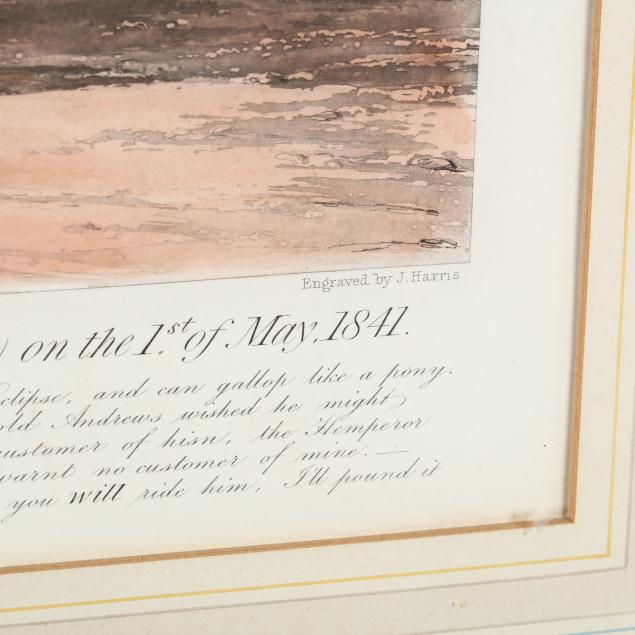 Engraved by J. Harris.
) on the 1.st of May, 1841.
clipse, and can gallop like a pony.
old Andrews wished he might
customer of hisn, the Hemperor
warnt no customer of mine. —
you will ride him, I'll pound it